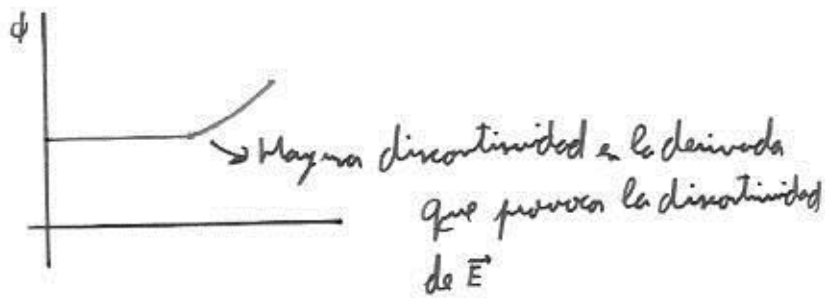 ϕ
Hay una discontinuidad en la derivada
que provoca la discontinuidad
de E⃗